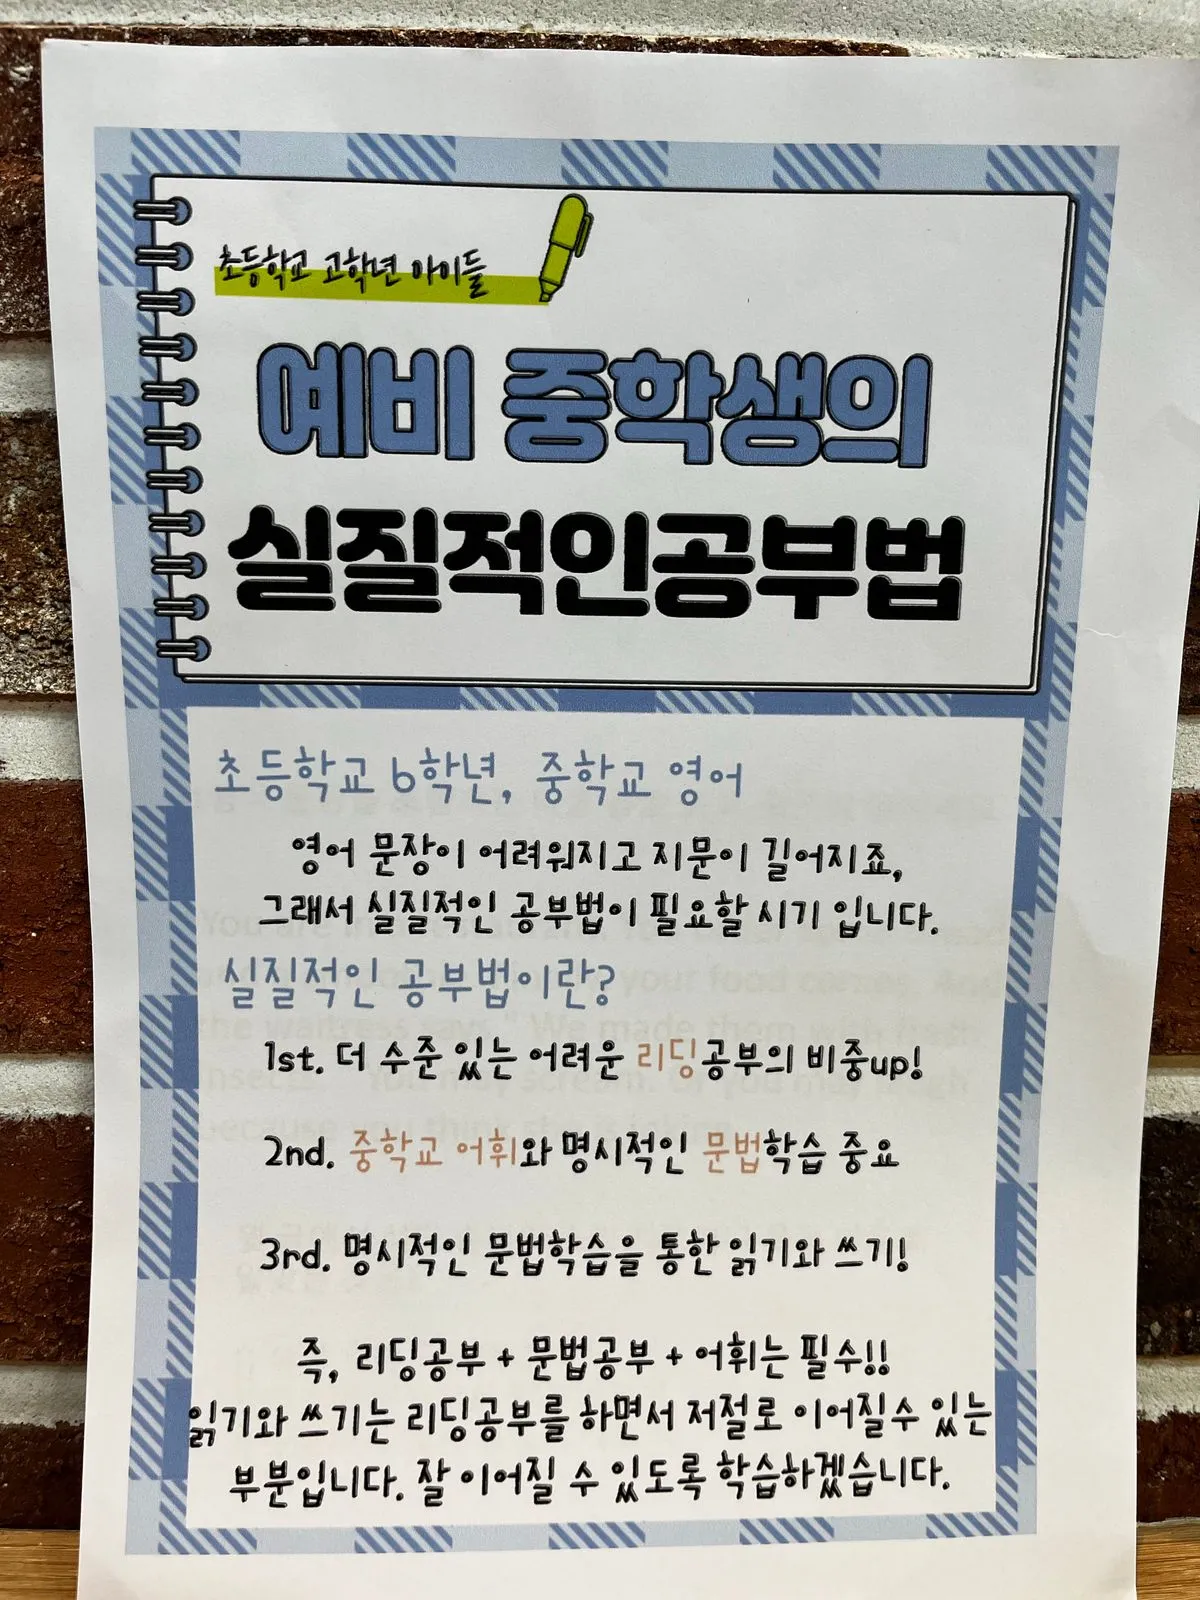 초등학교 고학년 아이들
예비 중학생의
실질적인공부법
초등학교 6학년, 중학교 영어
영어 문장이 어려워지고 지문이 길어지죠,
그래서 실질적인 공부법이 필요할 시기 입니다.
실질적인 공부법이란?
1st. 더 수준 있는 어려운 리딩공부의 비중up!
2nd. 중학교 어휘와 명시적인 문법학습 중요
3rd. 명시적인 문법학습을 통한 읽기와 쓰기!
즉, 리딩공부 + 문법공부 + 어휘는 필수!!
읽기와 쓰기는 리딩공부를 하면서 저절로 이어질수 있는
부분입니다. 잘 이어질 수 있도록 학습하겠습니다.